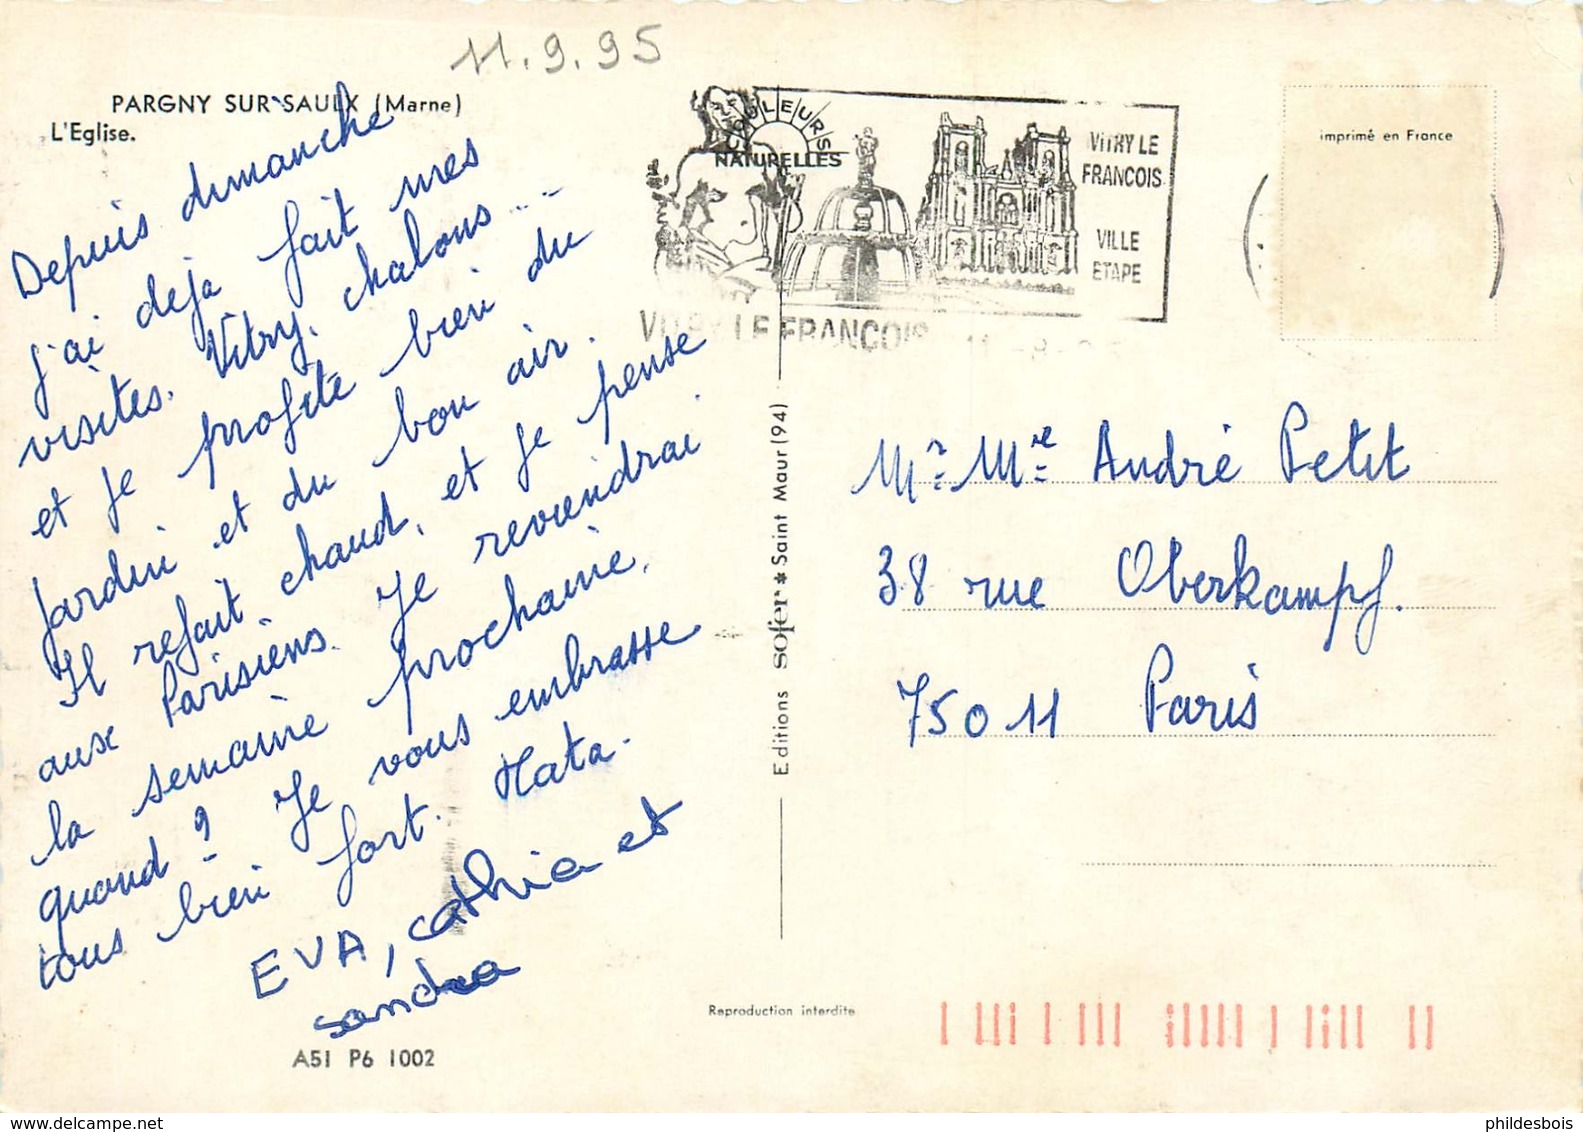 11.9.95
PARGNY SUR SAULX (Marne)
L'Eglise.
Depuis dimanche
j'ai déja fait mes
visites. Vitry, chalons...
et je profite bien du
jardin et du bon air.
Il refait chaud, et je pense
aux Parisiens. Je reviendrai
la semaine prochaine,
quand ? Je vous embrasse
tous bien fort. Mata.
EVA, cathia et
sandra
A51 P6 1002
COULEURS
NATURELLES
VITRY LE
FRANCOIS
VILLE
ETAPE
VITRY LE FRANÇOIS
imprimé en France
Editions sofer * Saint Maur (94)
Mr Me André Petit
38 rue Oberkampf.
75011 Paris
Reproduction interdite
phildesbois